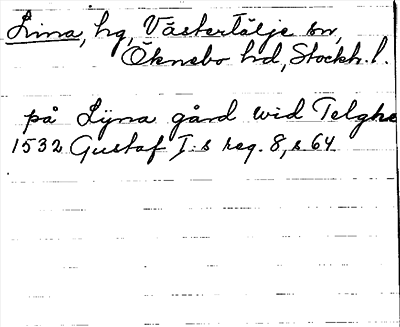 Lina, hg, Västertälje sn,
Öknebo hd, Stockh. l.
på Lÿna gård wid Telghe
1532 Gustaf I:s reg. 8, s 64